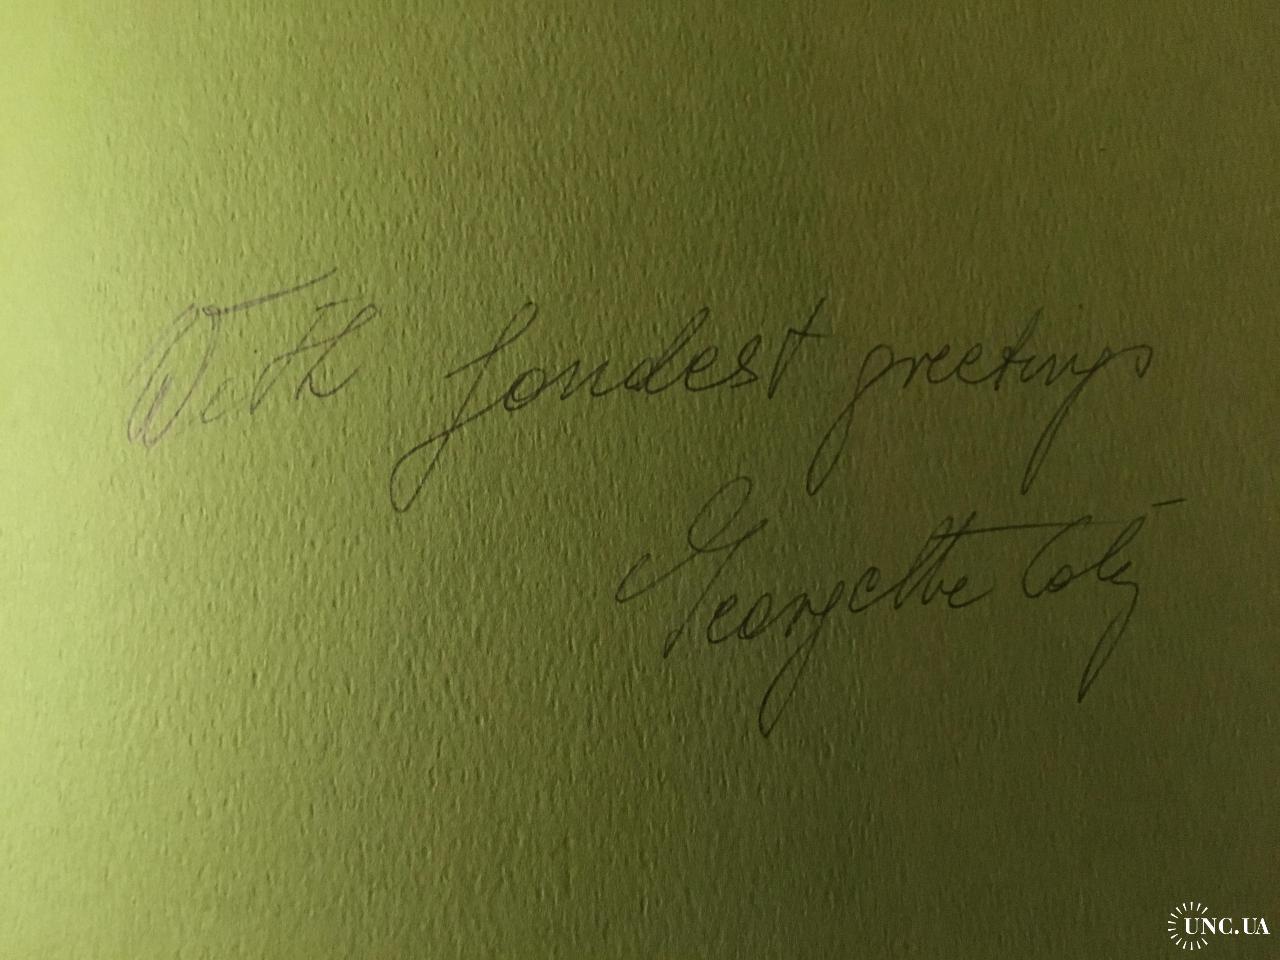 With fondest greetings
Georgette
UNC.UA